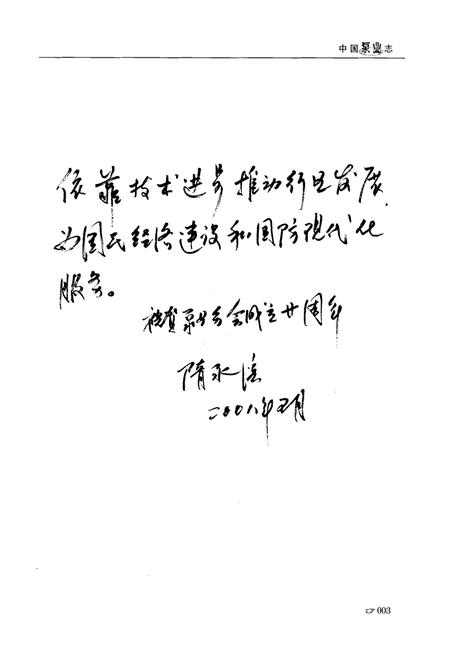 中国泵业志
依靠技术进步推动行业发展,
为国民经济建设和国防现代化
服务。
祝贺泵业分会成立廿周年
隋永滨
二〇〇八年五月
☞ 003